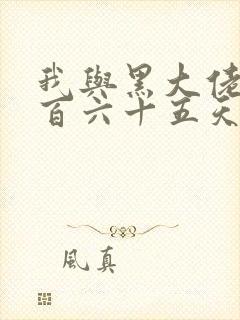 我與黑大佬
百六十五天
風真